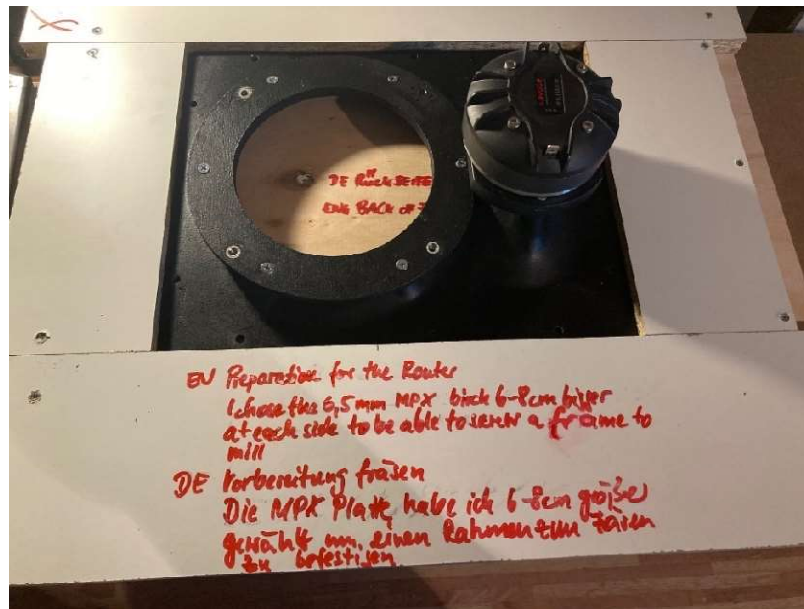 DE RückSEITE
ENG BACK OF
EN Preparation for the Router
I chose the 6,5mm MPX birch 6-8cm bigger
at each side to be able to screw a frame to
mill
DE Vorbereitung fräsen
Die MPX Platte habe ich 6-8cm größer
gewählt um einen Rahmen zum fräsen
zu befestigen